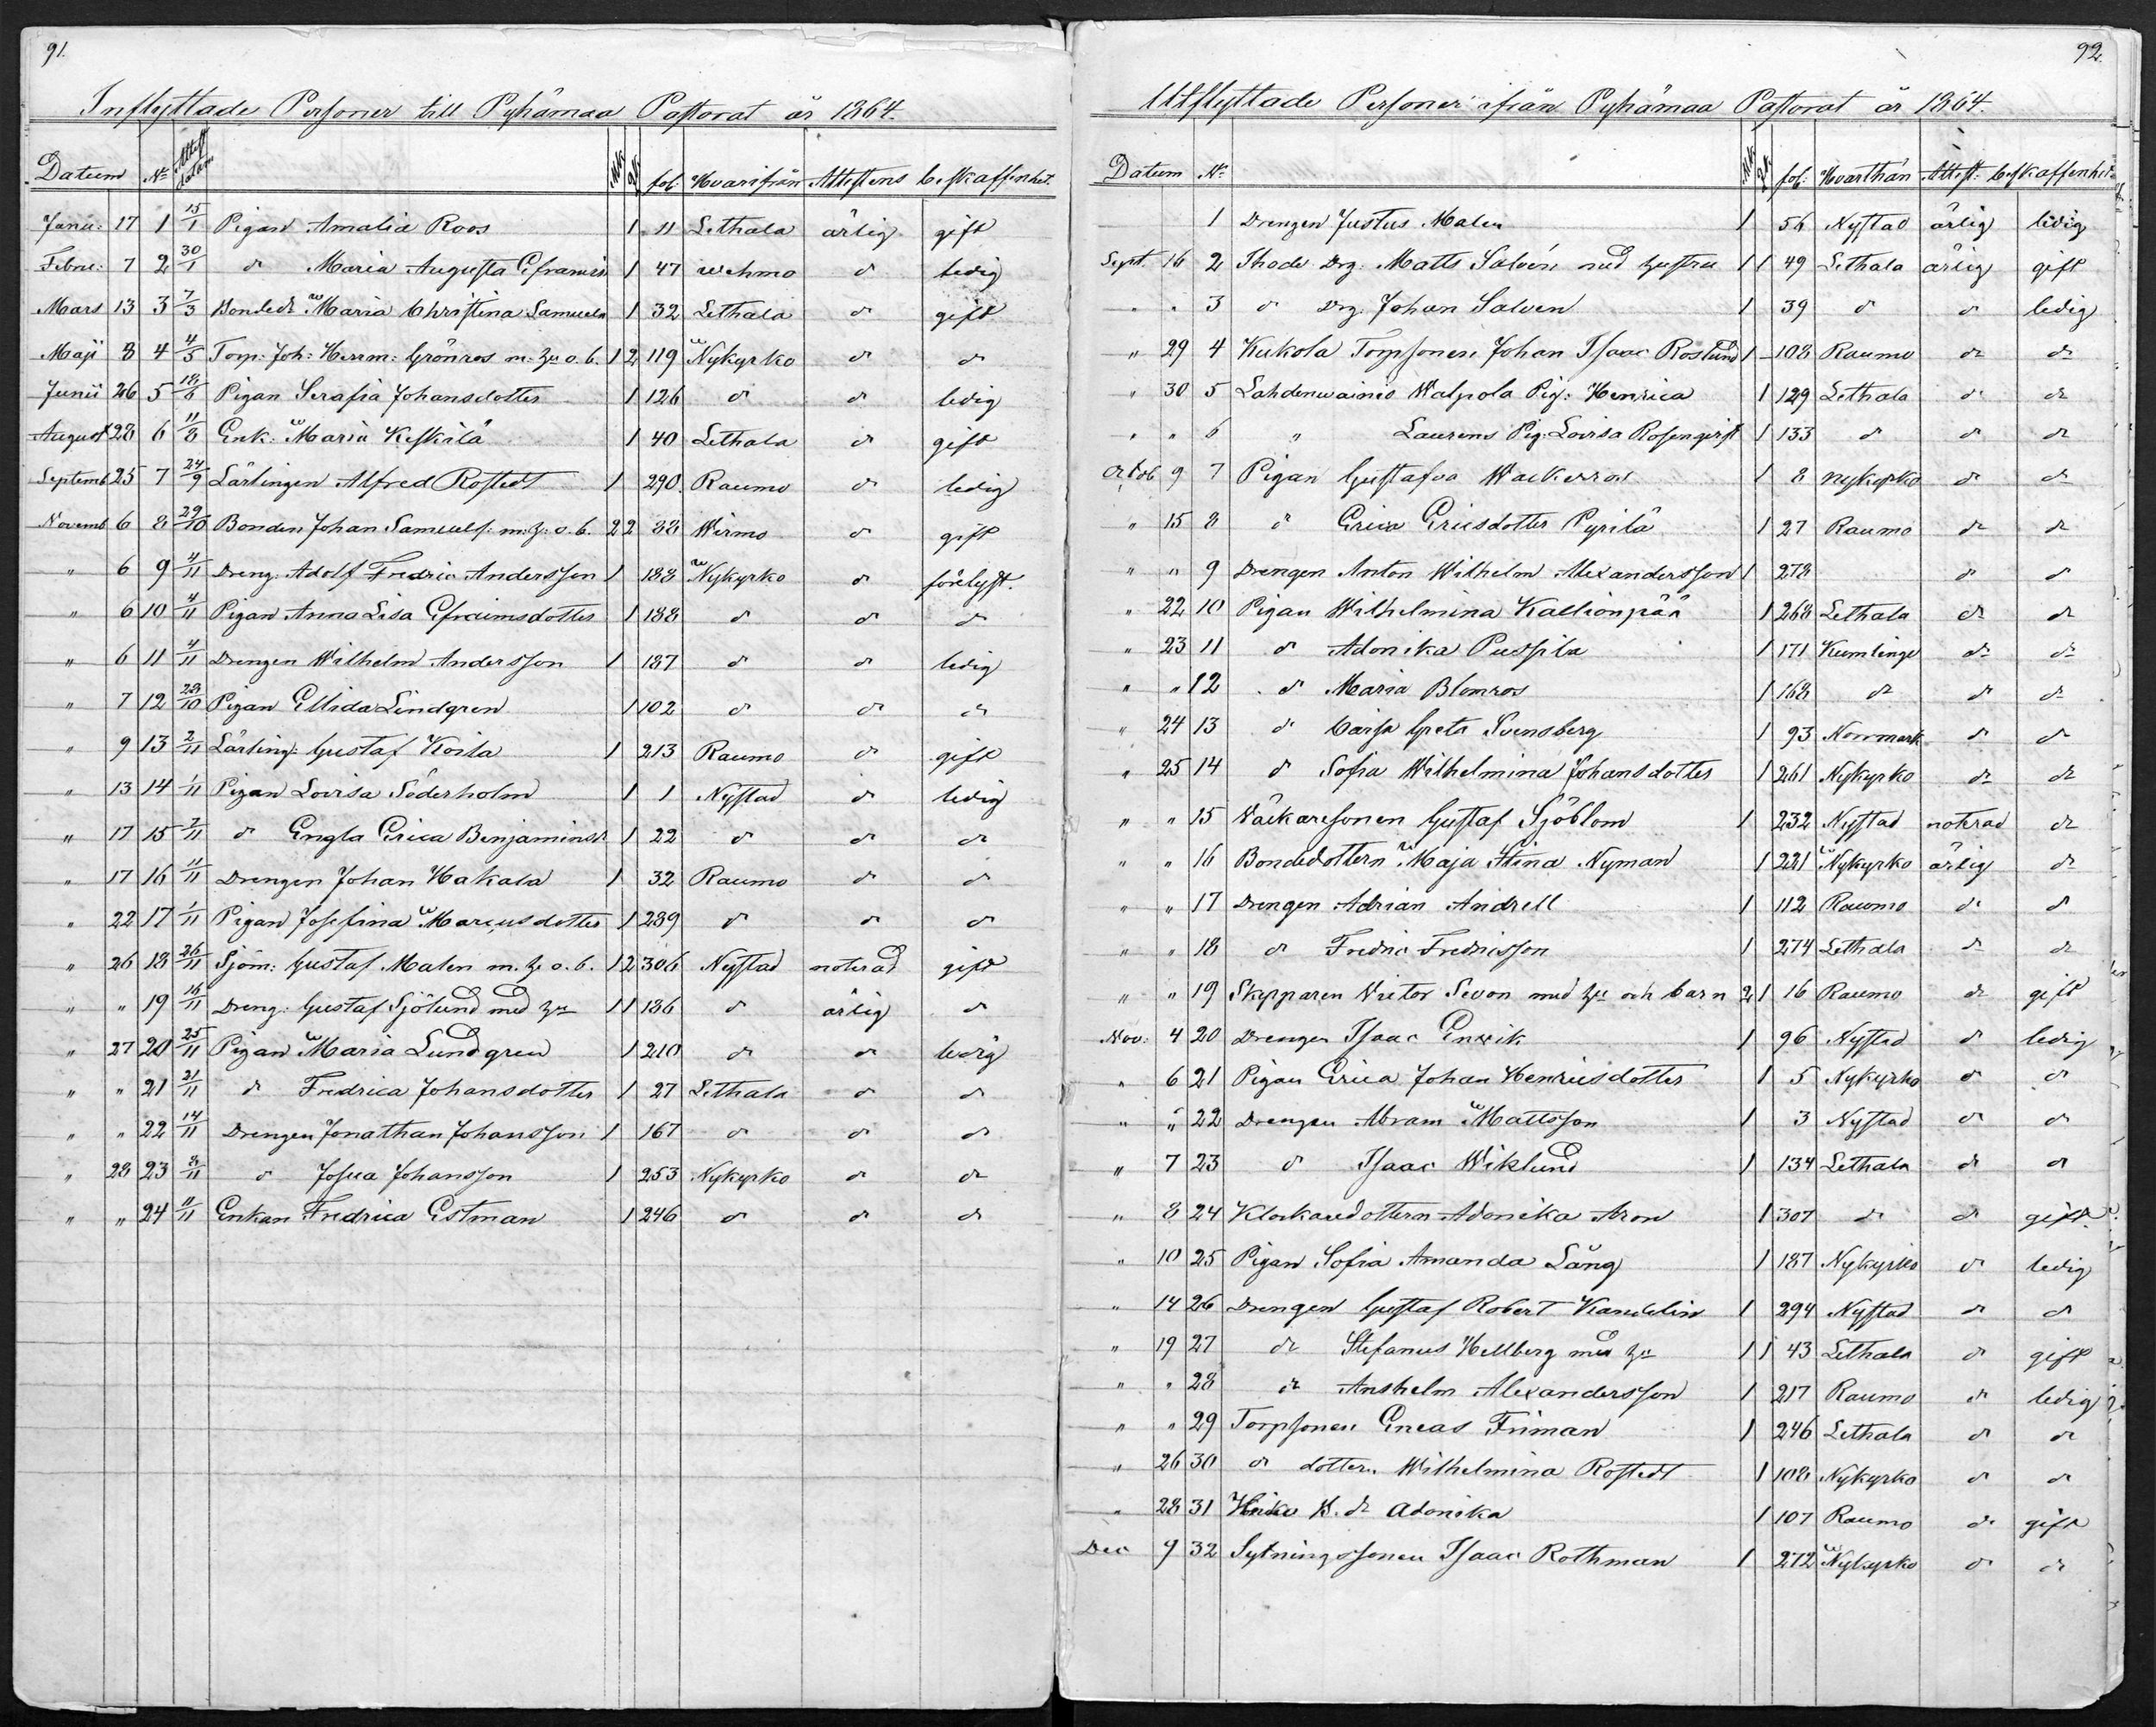 91.
Inflyttade Personer till Pyhämaa Pastorat år 1864.
Datum No Attest datum Mk. Qk. fol. Hvarifrån Attestens beskaffenhet.
Janu: 17 1 15/1 Pigan Amalia Roos 1 11 Lethala ärlig gift
Febru: 7 2 30/1 do Maria Augusta Efraimsd. 1 47 Wehmo do ledig
Mars 13 3 7/3 Bondedr Maria Christina Samuels 1 32 Lethala do gift
Maji 8 4 4/5 Torp: Joh: Herrm: Grönros m. hu o. b. 1 2 119 Nykyrko do do
Junii 26 5 18/6 Pigan Serafia Johansdotter 1 126 do do ledig
August 28 6 11/8 Enk: Maria Keskilä 1 40 Lethala do gift
Septemb 25 7 24/9 Lärlingen Alfred Rostedt 1 290 Raumo do ledig
Novemb 6 8 29/10 Bonden Johan Samuels: m. h: o. b. 2 2 88 Wirmo do gift
" 6 9 4/11 Dreng: Adolf Fredric Andersson 1 188 Nykyrko do förelyst.
" 6 10 4/11 Pigan Anna Lisa Efraimsdotter 1 188 do do do
" 6 11 4/11 Drengen Wilhelm Andersson 1 187 do do ledig
" 7 12 28/10 Pigan Ellida Lindgren 1 102 do do do
" 9 13 2/11 Lärling: Gustaf Koila 1 213 Raumo do gift
" 13 14 1/11 Pigan Lovisa Söderholm 1 1 Nystad do ledig
" 17 15 7/11 do Engla Erica Benjaminsdr 1 22 do do do
" 17 16 11/11 Drengen Johan Hakala 1 32 Raumo do do
" 22 17 1/11 Pigan Josefina Marcusdotter 1 289 do do do
" 26 18 26/11 Sjöm: Gustaf Malen m. h. o. b. 1 2 306 Nystad noterad gift
" " 19 16/11 Dreng: Gustaf Sjölund med hu 1 1 186 do ärlig do
" 27 20 25/11 Pigan Maria Lundgren 1 210 do do ledig
" " 21 21/11 do Fredrica Johansdotter 1 27 Lethala do do
" " 22 14/11 Drengen Jonathan Johansson 1 167 do do do
" 28 23 8/11 do Josua Johansson 1 253 Nykyrko do do
" " 24 11/11 Enkan Fredrica Estman 1 246 do do do
92.
Utflyttade Personer ifrån Pyhämaa Pastorat år 1864.
Datum No Mk. Qk. fol. Hvarthän Attest: beskaffenhet
1 Drengen Justus Malen 1 56 Nystad ärlig ledig
Sept. 16 2 Ihode Drg. Matts Salvén med hustru 1 1 49 Lethala ärlig gift
" " 3 do Drg. Johan Salven 1 39 do do ledig
" 29 4 Kukola Torpsonen Johan Isaac Roslund 1 108 Raumo do do
" 30 5 Lahdenwainio Walpola Pig: Henrica 1 129 Lethala do do
" " 6 " Laurens Pig: Lovisa Rosenqvist 1 133 do do do
Octob 9 7 Pigan Gustafva Wackerros 1 8 Nykyrko do do
" 15 8 do Erica Ericsdotter Pyrilä 1 27 Raumo do do
" " 9 Drengen Anton Wilhelm Alexandersson 1 278 do do
" 22 10 Pigan Wilhelmina Kallionpää 1 268 Lethala do do
" 23 11 do Adonika Pussila 1 171 Kumlinge do do
" " 12 do Maria Blomros 1 168 do do do
" 24 13 do Caisa Greta Svensberg 1 93 Norrmark do do
" 25 14 do Sofia Wilhelmina Johansdotter 1 261 Nykyrko do do
" " 15 Wäckaresonen Gustaf Sjöblom 1 232 Nystad noterad do
" " 16 Bondedottern Maja Stina Nyman 1 221 Nykyrko ärlig do
" " 17 Drengen Adrian Andrell 1 112 Raumo do do
" " 18 do Fredric Fredricsson 1 274 Lethala do do
" " 19 Skepparen Victor Sevon med hu och barn 2 1 16 Raumo do gift
Nov: 4 20 Drengen Isaac Enwik 1 96 Nystad do ledig
" 6 21 Pigan Erica Johan Henricsdotter 1 5 Nykyrko do do
" " 22 Drengen Abram Mattsson 1 3 Nystad do do
" 7 23 do Isaac Wiklund 1 134 Lethala do do
" 8 24 Klockaredottern Adonika Aron 1 307 do do gift.
" 10 25 Pigan Sofia Amanda Lång 1 187 Nykyrko do ledig
" 14 26 Drengen Gustaf Robert Kandelin 1 294 Nystad do do
" 19 27 do Stefanus Hellberg med hu 1 1 43 Lethala do gift
" " 28 do Anshelm Alexandersson 1 217 Raumo do ledig
" " 29 Torpsonen Eneas Friman 1 246 Lethala do do
" 26 30 do dottern Wilhelmina Rostedt 1 108 Nykyrko do do
" 28 31 B. dr Adonika 1 107 Raumo do gift
Dec 9 32 Sytningssonen Isaac Rothman 1 272 Nykyrko do do